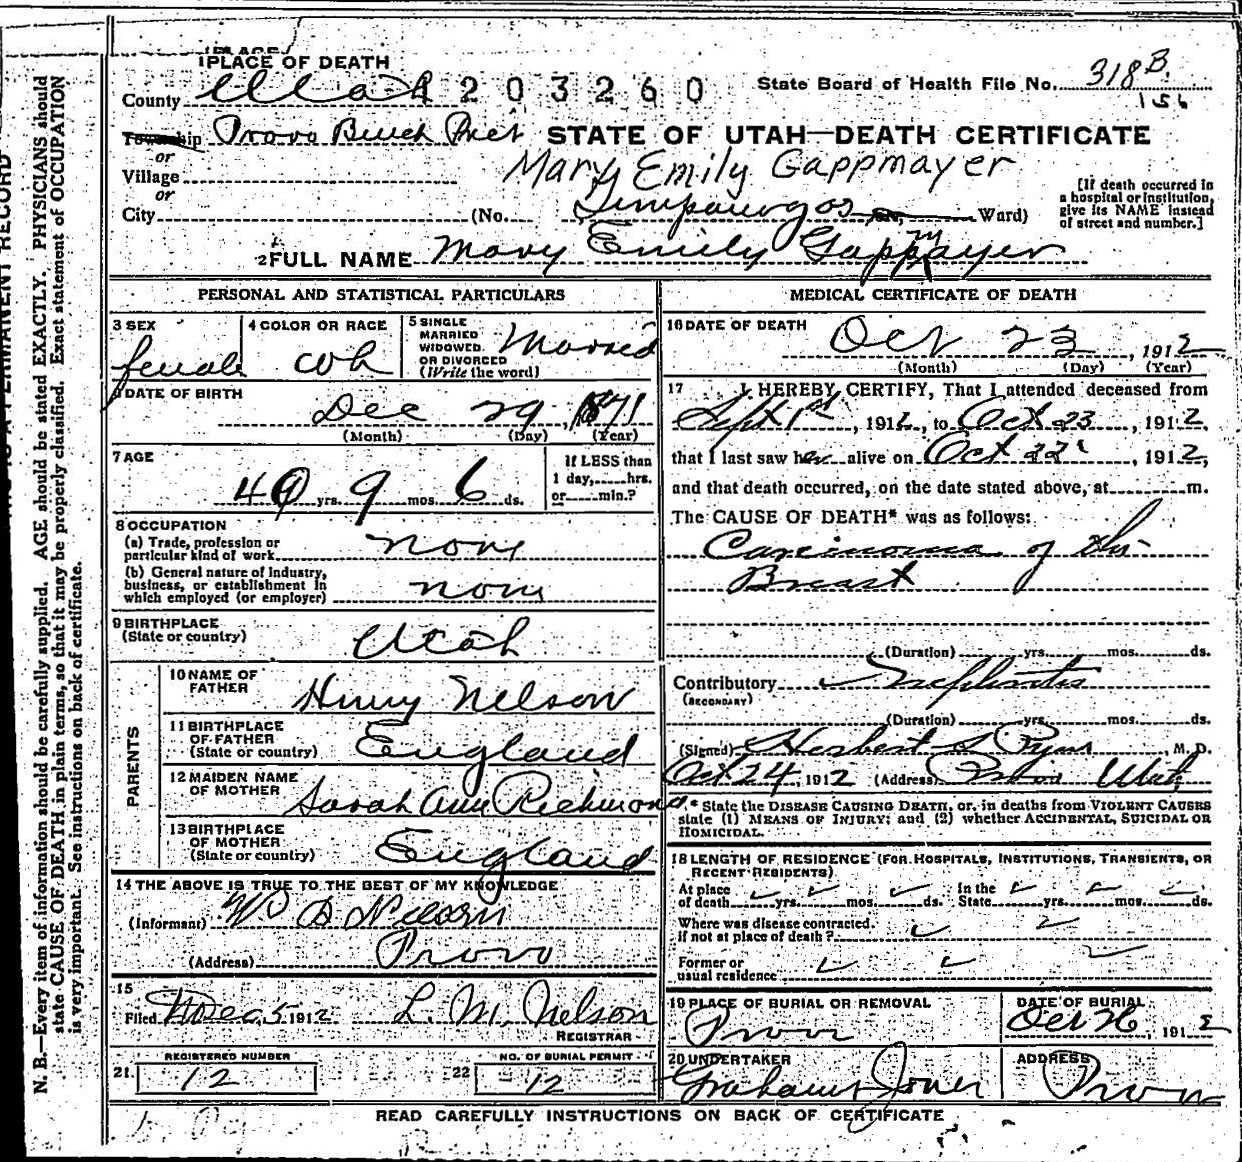 1 PLACE OF DEATH
County Utah 1203260 State Board of Health File No. 318 B.
156
Township Provo Bench Prect STATE OF UTAH—DEATH CERTIFICATE
or
Mary Emily Gappmayer
Village
or
City (No. Timpanogos St., Ward)
[If death occurred in
a hospital or institution,
give its NAME instead
of street and number.]
2 FULL NAME Mary Emily Gappmayer
PERSONAL AND STATISTICAL PARTICULARS
3 SEX
female
4 COLOR OR RACE
wh
5 SINGLE
MARRIED
WIDOWED
OR DIVORCED
(Write the word)
Married
6 DATE OF BIRTH
Dec 29, 1871
(Month) (Day) (Year)
7 AGE
40 yrs. 9 mos. 6 ds.
If LESS than
1 day, hrs.
or min.?
8 OCCUPATION
(a) Trade, profession or
particular kind of work none
(b) General nature of industry,
business, or establishment in
which employed (or employer) none
9 BIRTHPLACE
(State or country) Utah
PARENTS
10 NAME OF
FATHER Henry Nelson
11 BIRTHPLACE
OF FATHER
(State or country) England
12 MAIDEN NAME
OF MOTHER Sarah Ann Richmond
13 BIRTHPLACE
OF MOTHER
(State or country) England
14 THE ABOVE IS TRUE TO THE BEST OF MY KNOWLEDGE
(Informant) W D Nelson
(Address) Provo
15
Filed Dec 5 1912 L. M. Nelson
REGISTRAR
REGISTERED NUMBER
21. 12
NO. OF BURIAL PERMIT
22 12
MEDICAL CERTIFICATE OF DEATH
16 DATE OF DEATH
Oct 23, 1912
(Month) (Day) (Year)
17 I HEREBY CERTIFY, That I attended deceased from
Sept 1st, 1912, to Oct 23, 1912,
that I last saw her alive on Oct 22, 1912,
and that death occurred, on the date stated above, at m.
The CAUSE OF DEATH* was as follows:
Carcinoma of the
Breast
(Duration) yrs. mos. ds.
Contributory Nephritis
(SECONDARY)
(Duration) yrs. mos. ds.
(Signed) Herbert S Pyne, M. D.
Oct 24, 1912 (Address) Provo Utah
* State the DISEASE CAUSING DEATH, or, in deaths from VIOLENT CAUSES
state (1) MEANS OF INJURY; and (2) whether ACCIDENTAL, SUICIDAL OR
HOMICIDAL.
18 LENGTH OF RESIDENCE (FOR HOSPITALS, INSTITUTIONS, TRANSIENTS, OR
RECENT RESIDENTS)
At place
of death yrs. mos. ds.
In the
State yrs. mos. ds.
Where was disease contracted,
if not at place of death?
Former or
usual residence
19 PLACE OF BURIAL OR REMOVAL
Provo
DATE OF BURIAL
Oct 26, 1912
20 UNDERTAKER
Graham & Jones
ADDRESS
Provo
READ CAREFULLY INSTRUCTIONS ON BACK OF CERTIFICATE
N. B.—Every item of information should be carefully supplied. AGE should be stated EXACTLY. PHYSICIANS should
state CAUSE OF DEATH in plain terms, so that it may be properly classified. Exact statement of OCCUPATION
is very important. See instructions on back of certificate.